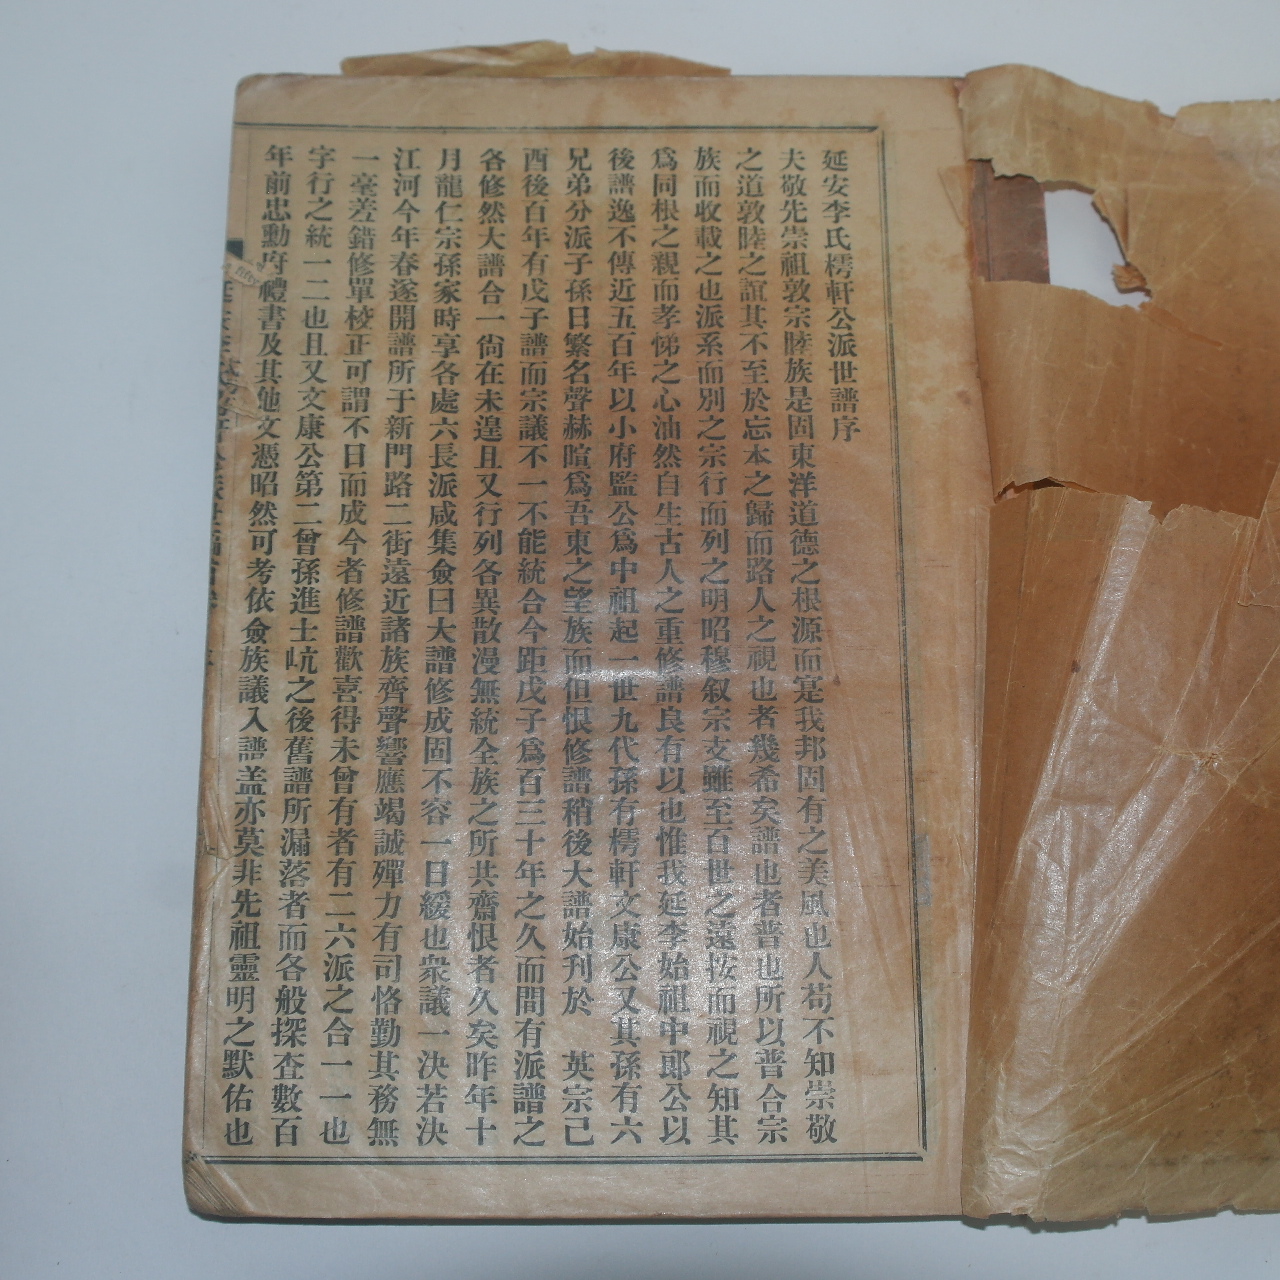 延安李氏樗軒公派世譜序
夫敬先崇祖敦宗睦族是固東洋道德之根源而寔我邦固有之美風也人苟不知崇敬
之道敦睦之誼其不至於忘本之歸而路人之視也者幾希矣譜也者普也所以普合宗
族而收載之也派系而別之宗行而列之明昭穆叙宗支雖至百世之遠按而視之知其
爲同根之親而孝悌之心油然自生古人之重修譜良有以也惟我延李始祖中郎公以
後譜逸不傳近五百年以小府監公爲中祖起一世九代孫有樗軒文康公又其孫有六
兄弟分派子孫日繁名聲赫喧爲吾東之望族而但恨修譜稍後大譜始刊於 英宗己
酉後百年有戊子譜而宗議不一不能統合今距戊子爲百三十年之久而間有派譜之
各修然大譜合一尙在未遑且又行列各異散漫無統全族之所共齋恨者久矣昨年十
月龍仁宗孫家時享各處六長派咸集僉曰大譜修成固不容一日緩也衆議一決若決
江河今年春遂開譜所于新門路二街遠近諸族齊聲響應竭誠殫力有司恪勤其務無
一毫差錯修單校正可謂不日而成今者修譜歡喜得未曾有者有二六派之合一一也
字行之統一二也且又文康公第二曾孫進士㞧之後舊譜所漏落者而各般探查數百
年前忠勳府禮書及其他文憑昭然可考依僉族議入譜盖亦莫非先祖靈明之默佑也